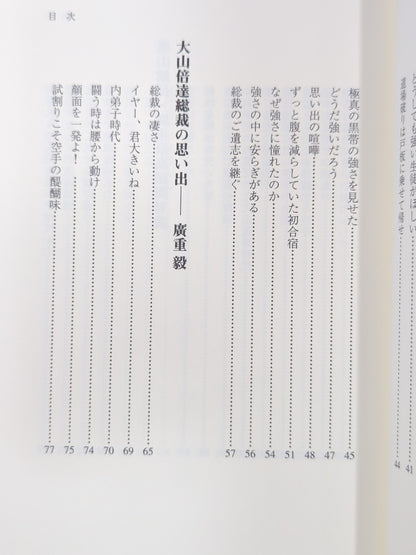 目次
どうしても強い生徒がほしい……41
道場破りは戸板に乗せて帰せ……44
極真の黒帯の強さを見せた……45
どうだ強いだろう……47
思い出の喧嘩……48
ずっと腹を減らしていた初合宿……51
なぜ強さに憧れたのか……54
強さの中に安らぎがある……56
総裁のご遺志を継ぐ……57
大山倍達総裁の思い出――廣重 毅
総裁の凄さ……65
イヤー、君大きいね……69
内弟子時代……70
闘う時は腰から動け……74
顔面を一発よ！……75
試割りこそ空手の醍醐味……77